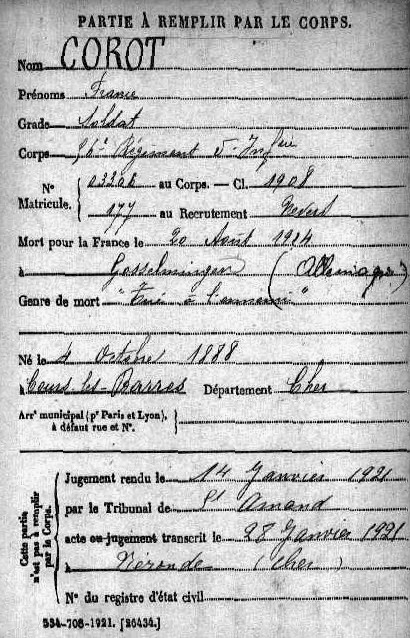 PARTIE À REMPLIR PAR LE CORPS.
Nom COROT
Prénoms France
Grade Soldat
Corps Régiment d'Infie
N° Matricule. 03308 au Corps. — Cl. 1908
177 au Recrutement Nevers
Mort pour la France le 20 Août 1914
à Gosselmingen (Allemagne)
Genre de mort "Tué à l'ennemi"
Né le 4 Octobre 1888
à Cours-les-Barres Département Cher
Arrt municipal (pr Paris et Lyon), à défaut rue et N°.
Cette partie n'est pas à remplir par le Corps.
Jugement rendu le 14 Janvier 1921
par le Tribunal de St Amand
acte ou jugement transcrit le 28 Janvier 1921
à Nérondes (Cher)
N° du registre d'état civil
534-708-1921. [26434.]